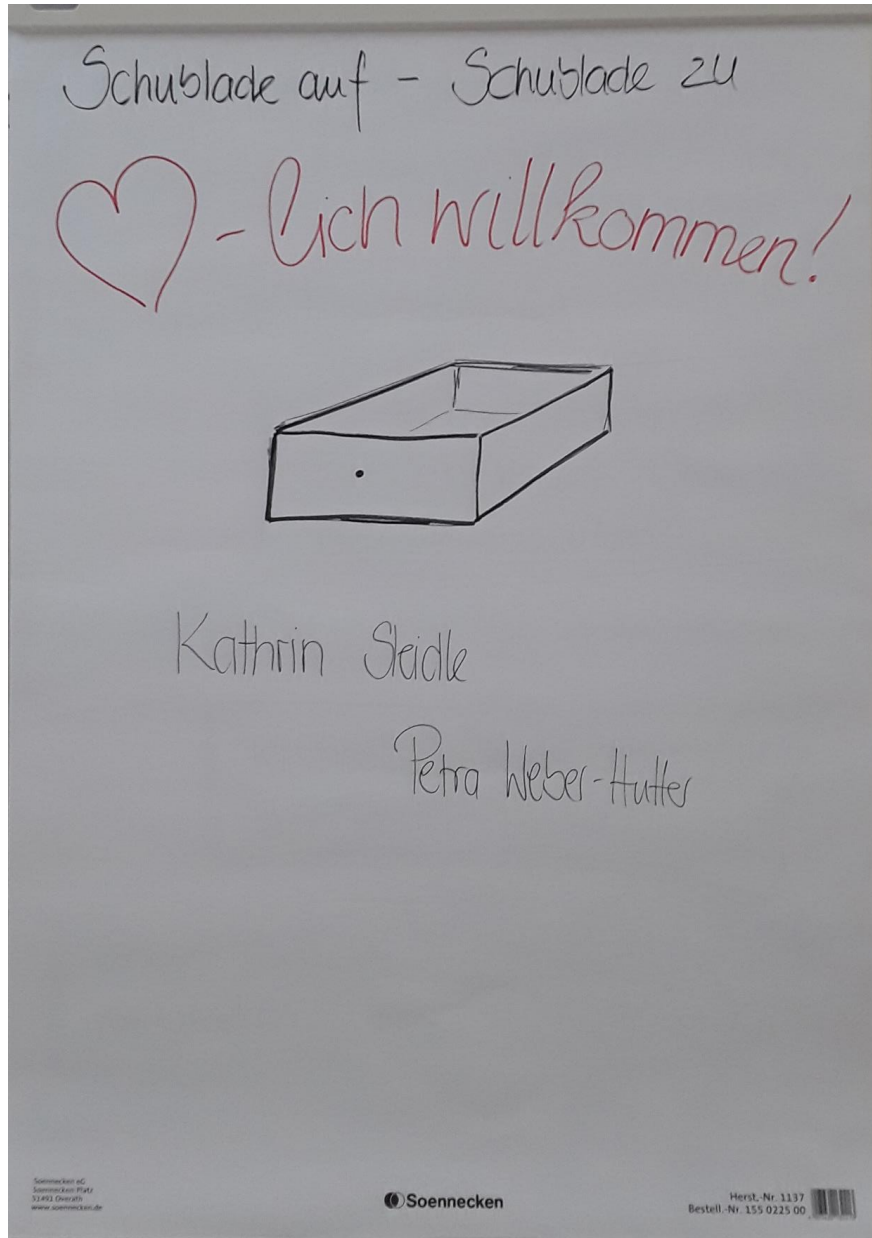 Schublade auf - Schublade zu
- lich willkommen!
Kathrin Steidle
Petra Weber-Hutter
Soennecken eG
Soennecken Platz
51491 Overath
www.soennecken.de
Soennecken
Herst.-Nr. 1137
Bestell.-Nr. 155 0225 00